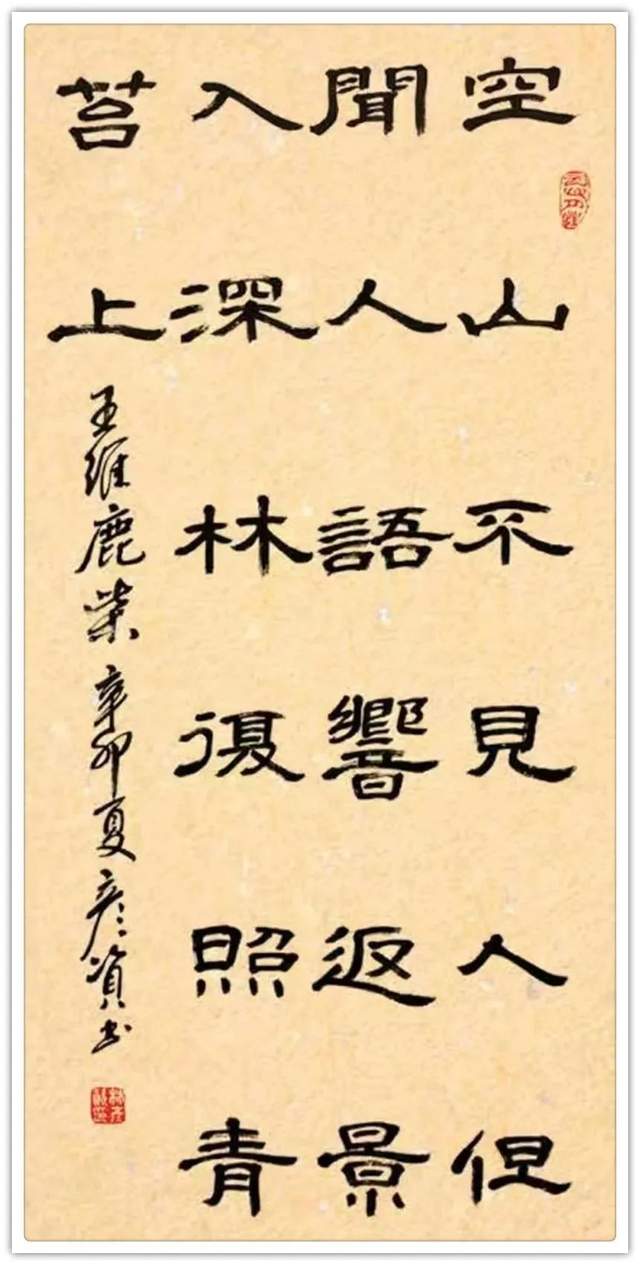 空山不見人但
聞人語響返景
入深林復照青
苔上
王維鹿柴辛卯夏彦資书